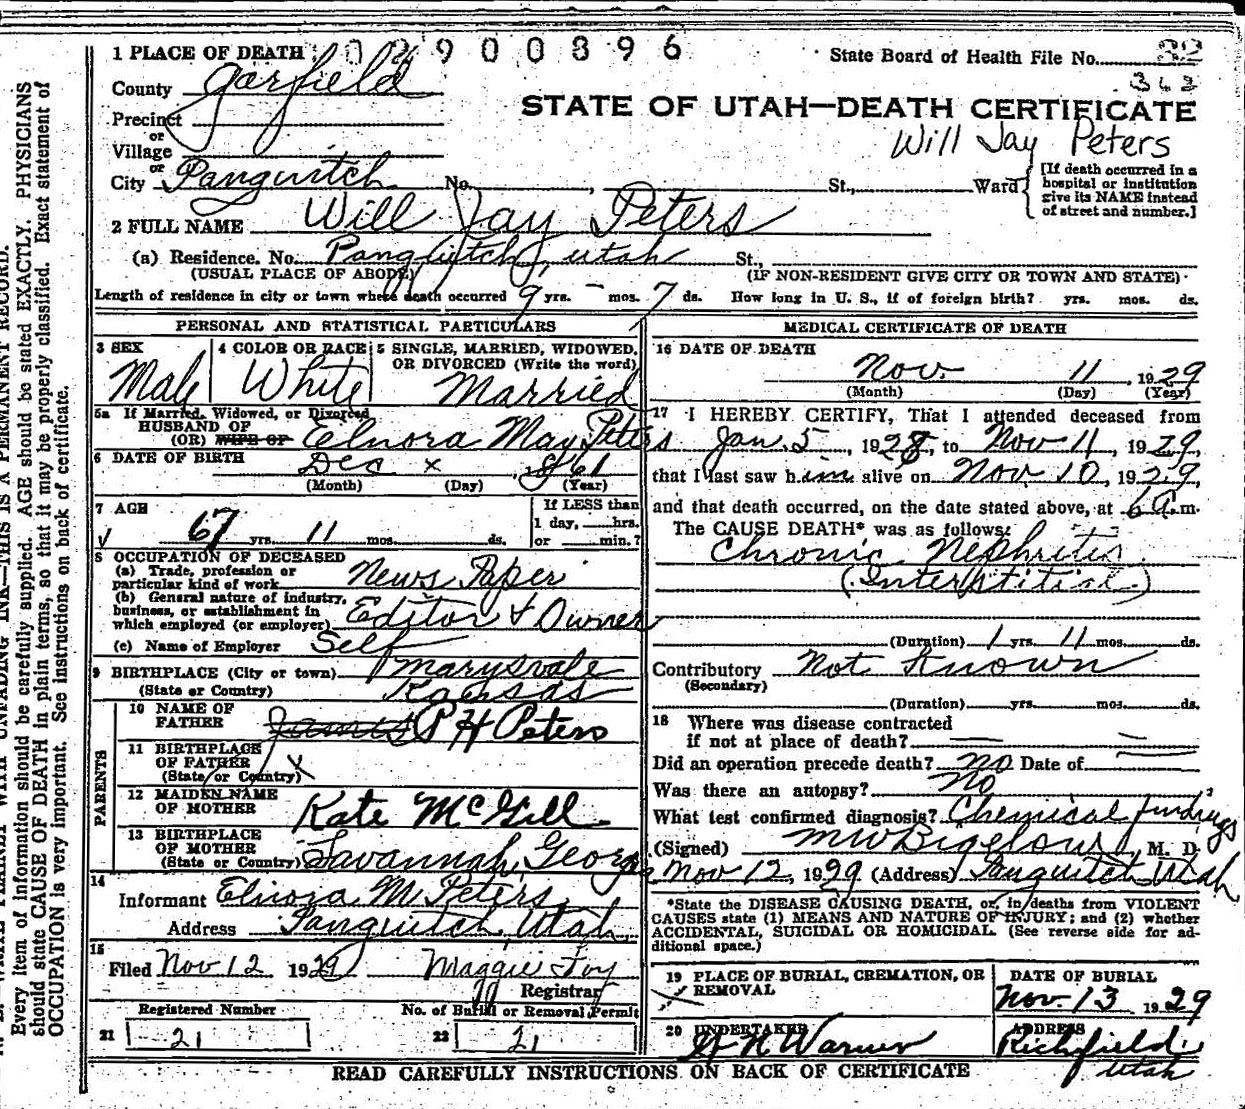 1 PLACE OF DEATH
02900896
State Board of Health File No. 32
363
County Garfield
STATE OF UTAH—DEATH CERTIFICATE
Precinct
or
Will Jay Peters
Village
or
City Panguitch No. , St., Ward
[If death occurred in a
hospital or institution
give its NAME instead
of street and number.]
2 FULL NAME Will Jay Peters
(a) Residence. No. Panguitch, Utah St.,
(USUAL PLACE OF ABODE) (IF NON-RESIDENT GIVE CITY OR TOWN AND STATE)
Length of residence in city or town where death occurred 9 yrs. - mos. 7 ds. How long in U. S., if of foreign birth? yrs. mos. ds.
PERSONAL AND STATISTICAL PARTICULARS
3 SEX
Male
4 COLOR OR RACE
White
5 SINGLE, MARRIED, WIDOWED,
OR DIVORCED (Write the word)
Married
5a If Married, Widowed, or Divorced
HUSBAND OF
(OR) WIFE OF Elnora May Peters
6 DATE OF BIRTH Dec x , 1861
(Month) (Day) (Year)
7 AGE
67 yrs. 11 mos. ds.
If LESS than
1 day, hrs.
or min.?
8 OCCUPATION OF DECEASED
(a) Trade, profession or
particular kind of work News Paper
(b) General nature of industry,
business, or establishment in
which employed (or employer) Editor & Owner
(c) Name of Employer Self
9 BIRTHPLACE (City or town) Marysvale
(State or Country) Kansas
PARENTS
10 NAME OF
FATHER James P H Peters
11 BIRTHPLACE
OF FATHER
(State or Country) X
12 MAIDEN NAME
OF MOTHER Kate McGill
13 BIRTHPLACE
OF MOTHER
(State or Country) Savannah, Georgia
14
Informant Elnora M Peters
Address Panguitch, Utah.
15
Filed Nov 12 1929 Maggie Foy
Registrar
Registered Number No. of Burial or Removal Permit
21 21 22 21
MEDICAL CERTIFICATE OF DEATH
16 DATE OF DEATH
Nov. 11, 1929
(Month) (Day) (Year)
17 I HEREBY CERTIFY, That I attended deceased from
Jan. 5, 1928, to Nov 11, 1929,
that I last saw him alive on Nov. 10, 1929,
and that death occurred, on the date stated above, at 6 a.m.
The CAUSE DEATH* was as follows:
Chronic Nephritis
(Interstitial)
(Duration) 1 yrs. 11 mos. ds.
Contributory Not Known
(Secondary)
(Duration) yrs. mos. ds.
18 Where was disease contracted
if not at place of death?
Did an operation precede death? no Date of
Was there an autopsy? No
What test confirmed diagnosis? Chemical findings
(Signed) M W Bigelow, M. D.
Nov 12, 1929 (Address) Panguitch Utah
*State the DISEASE CAUSING DEATH, or, in deaths from VIOLENT
CAUSES state (1) MEANS AND NATURE OF INJURY; and (2) whether
ACCIDENTAL, SUICIDAL OR HOMICIDAL. (See reverse side for ad-
ditional space.)
19 PLACE OF BURIAL, CREMATION, OR
REMOVAL
DATE OF BURIAL
Nov. 13 1929
20 UNDERTAKER
Warner
ADDRESS
Richfield
Utah
READ CAREFULLY INSTRUCTIONS ON BACK OF CERTIFICATE
Every item of information should be carefully supplied. AGE should be stated EXACTLY. PHYSICIANS
should state CAUSE OF DEATH in plain terms, so that it may be properly classified. Exact statement of
OCCUPATION is very important. See instructions on back of certificate.